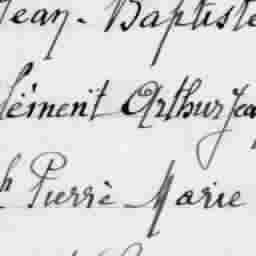 Jean-Baptiste
Clément Arthur Jea
h Pierre Marie